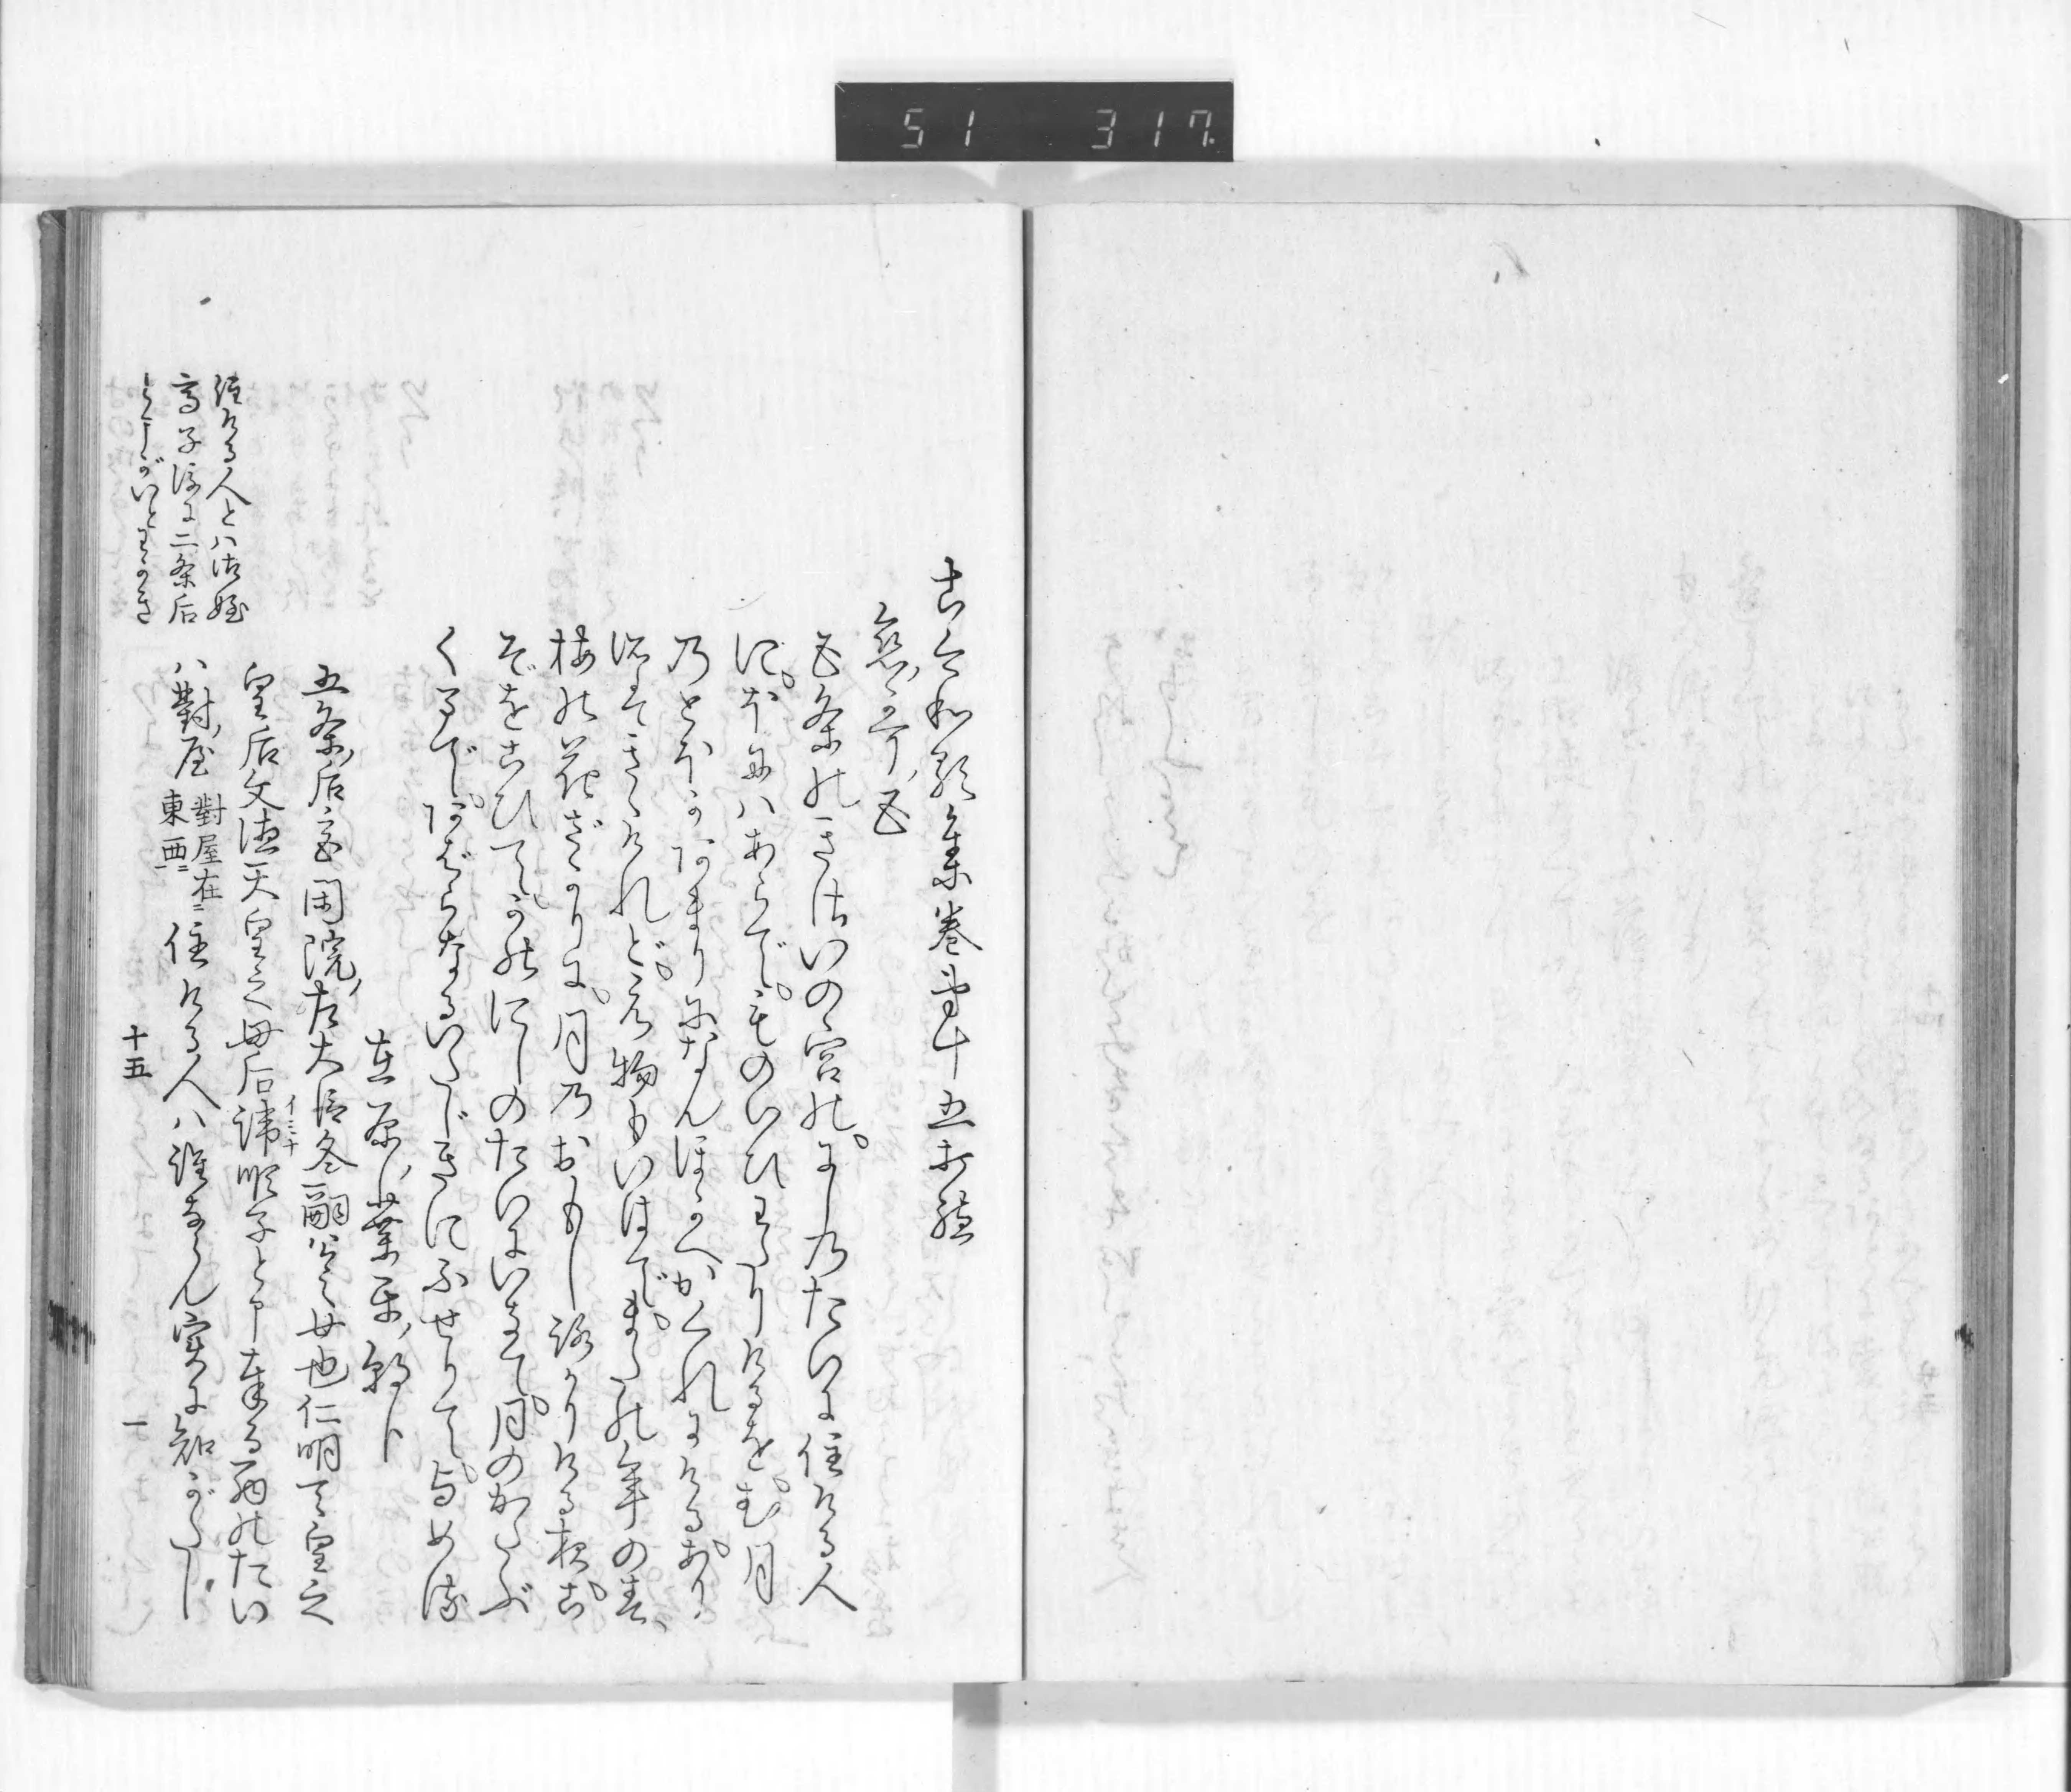 51 317
古今和歌集巻第十五打聴
恋歌五
五条のきさいの宮の。にし乃たいに住ける人
に。ほにはあらで。ものいひわたりけるを。む月
乃とをかあまりになんほかへかくれにける。あり
所はきゝけれど。え物もいはで。またの年の春、
梅の花ざかりに。月乃おもしろかりける夜。こ
ぞをこひて。かのにしのたいにいきて。月のかたぶ
くまで。あばらなるいたじきにふせりて。よめる
在原ノ業平ノ朝臣
五条ノ后ノ宮閑院ノ左大臣冬嗣公之女也仁明天皇之
皇后文徳天皇之母后諱順子と申奉る西のたい
イミナ
ハ對ノ屋
對屋在
東西ニ
住ける人ハ誰ならん実に知がたし
住ける人とハ御姪
高子後に二条后
十五
一